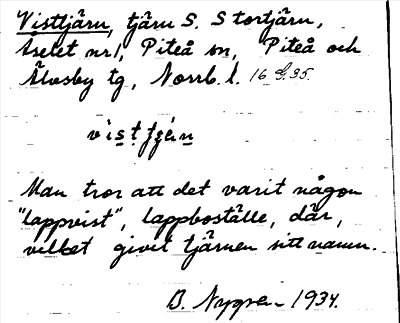 Visttjärn, tjärn S. Stortjärn,
Åselet nr 1, Piteå sn, Piteå och
Älvsby tg, Norrb. l. 16 G. 35.
Man tror att det varit någon
"lappvist", lappboställe, där,
vilket givit tjärnen sitt namn.
B. Nygren 1934.